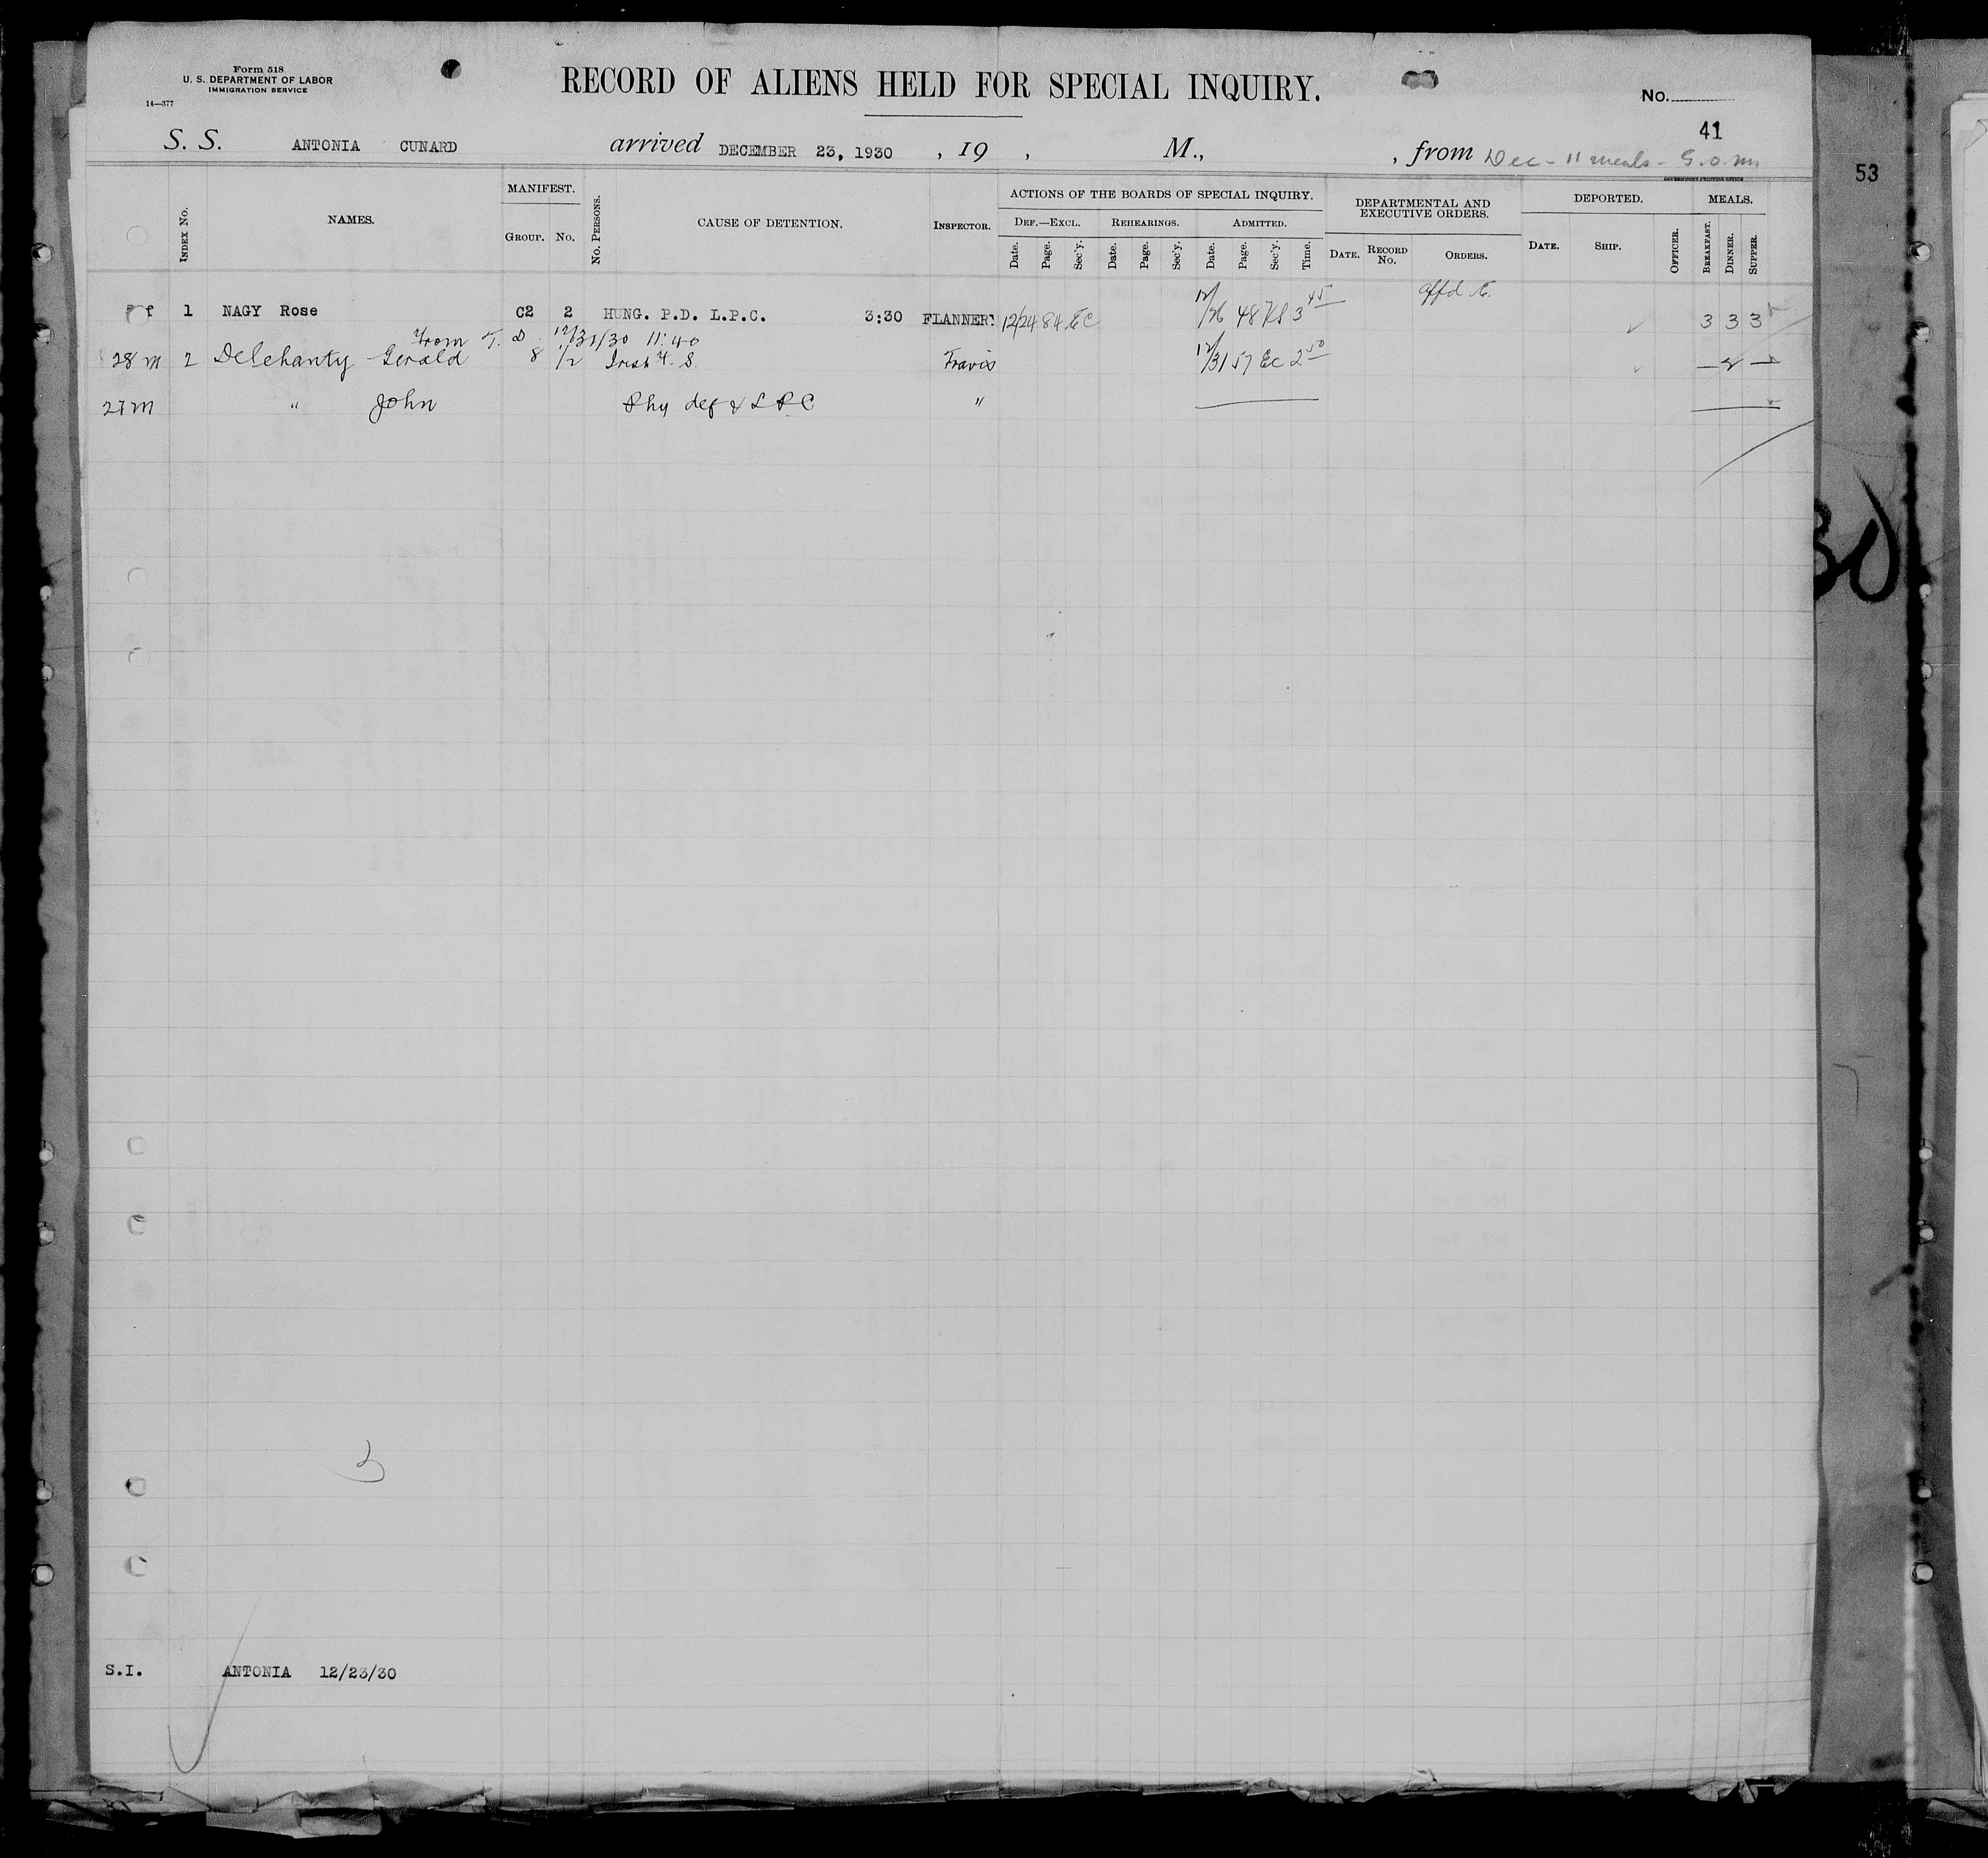 Form 518
U. S. DEPARTMENT OF LABOR
IMMIGRATION SERVICE
14—377
RECORD OF ALIENS HELD FOR SPECIAL INQUIRY.
No.
41
53
S. S. ANTONIA CUNARD arrived DECEMBER 23, 1930 , 19 , M., , from Dec - 11 meals - G.O.M.
GOVERNMENT PRINTING OFFICE
INDEX No. NAMES. MANIFEST. GROUP. No. No. PERSONS. CAUSE OF DETENTION. INSPECTOR.
ACTIONS OF THE BOARDS OF SPECIAL INQUIRY.
DEF.—EXCL. REHEARINGS. ADMITTED.
Date. Page. Sec'y. Date. Page. Sec'y. Date. Page. Sec'y. Time.
DEPARTMENTAL AND EXECUTIVE ORDERS.
DATE. RECORD No. ORDERS.
DEPORTED.
DATE. SHIP. OFFICER.
MEALS.
BREAKFAST. DINNER. SUPPER.
f 1 NAGY Rose C2 2 HUNG. P.D. L.P.C. 3:30 FLANNERY 12/24 84 EC 12/26 48 3 45 3 3 3
From T. D. 12/31/30 11:40
28 m 2 Delehanty Gerald 8 1/2 Irish Travis 12/31 57 EC 2 50 — 2 —
27 m " John Phy def & L P C "
3
S.I. ANTONIA 12/23/30
30